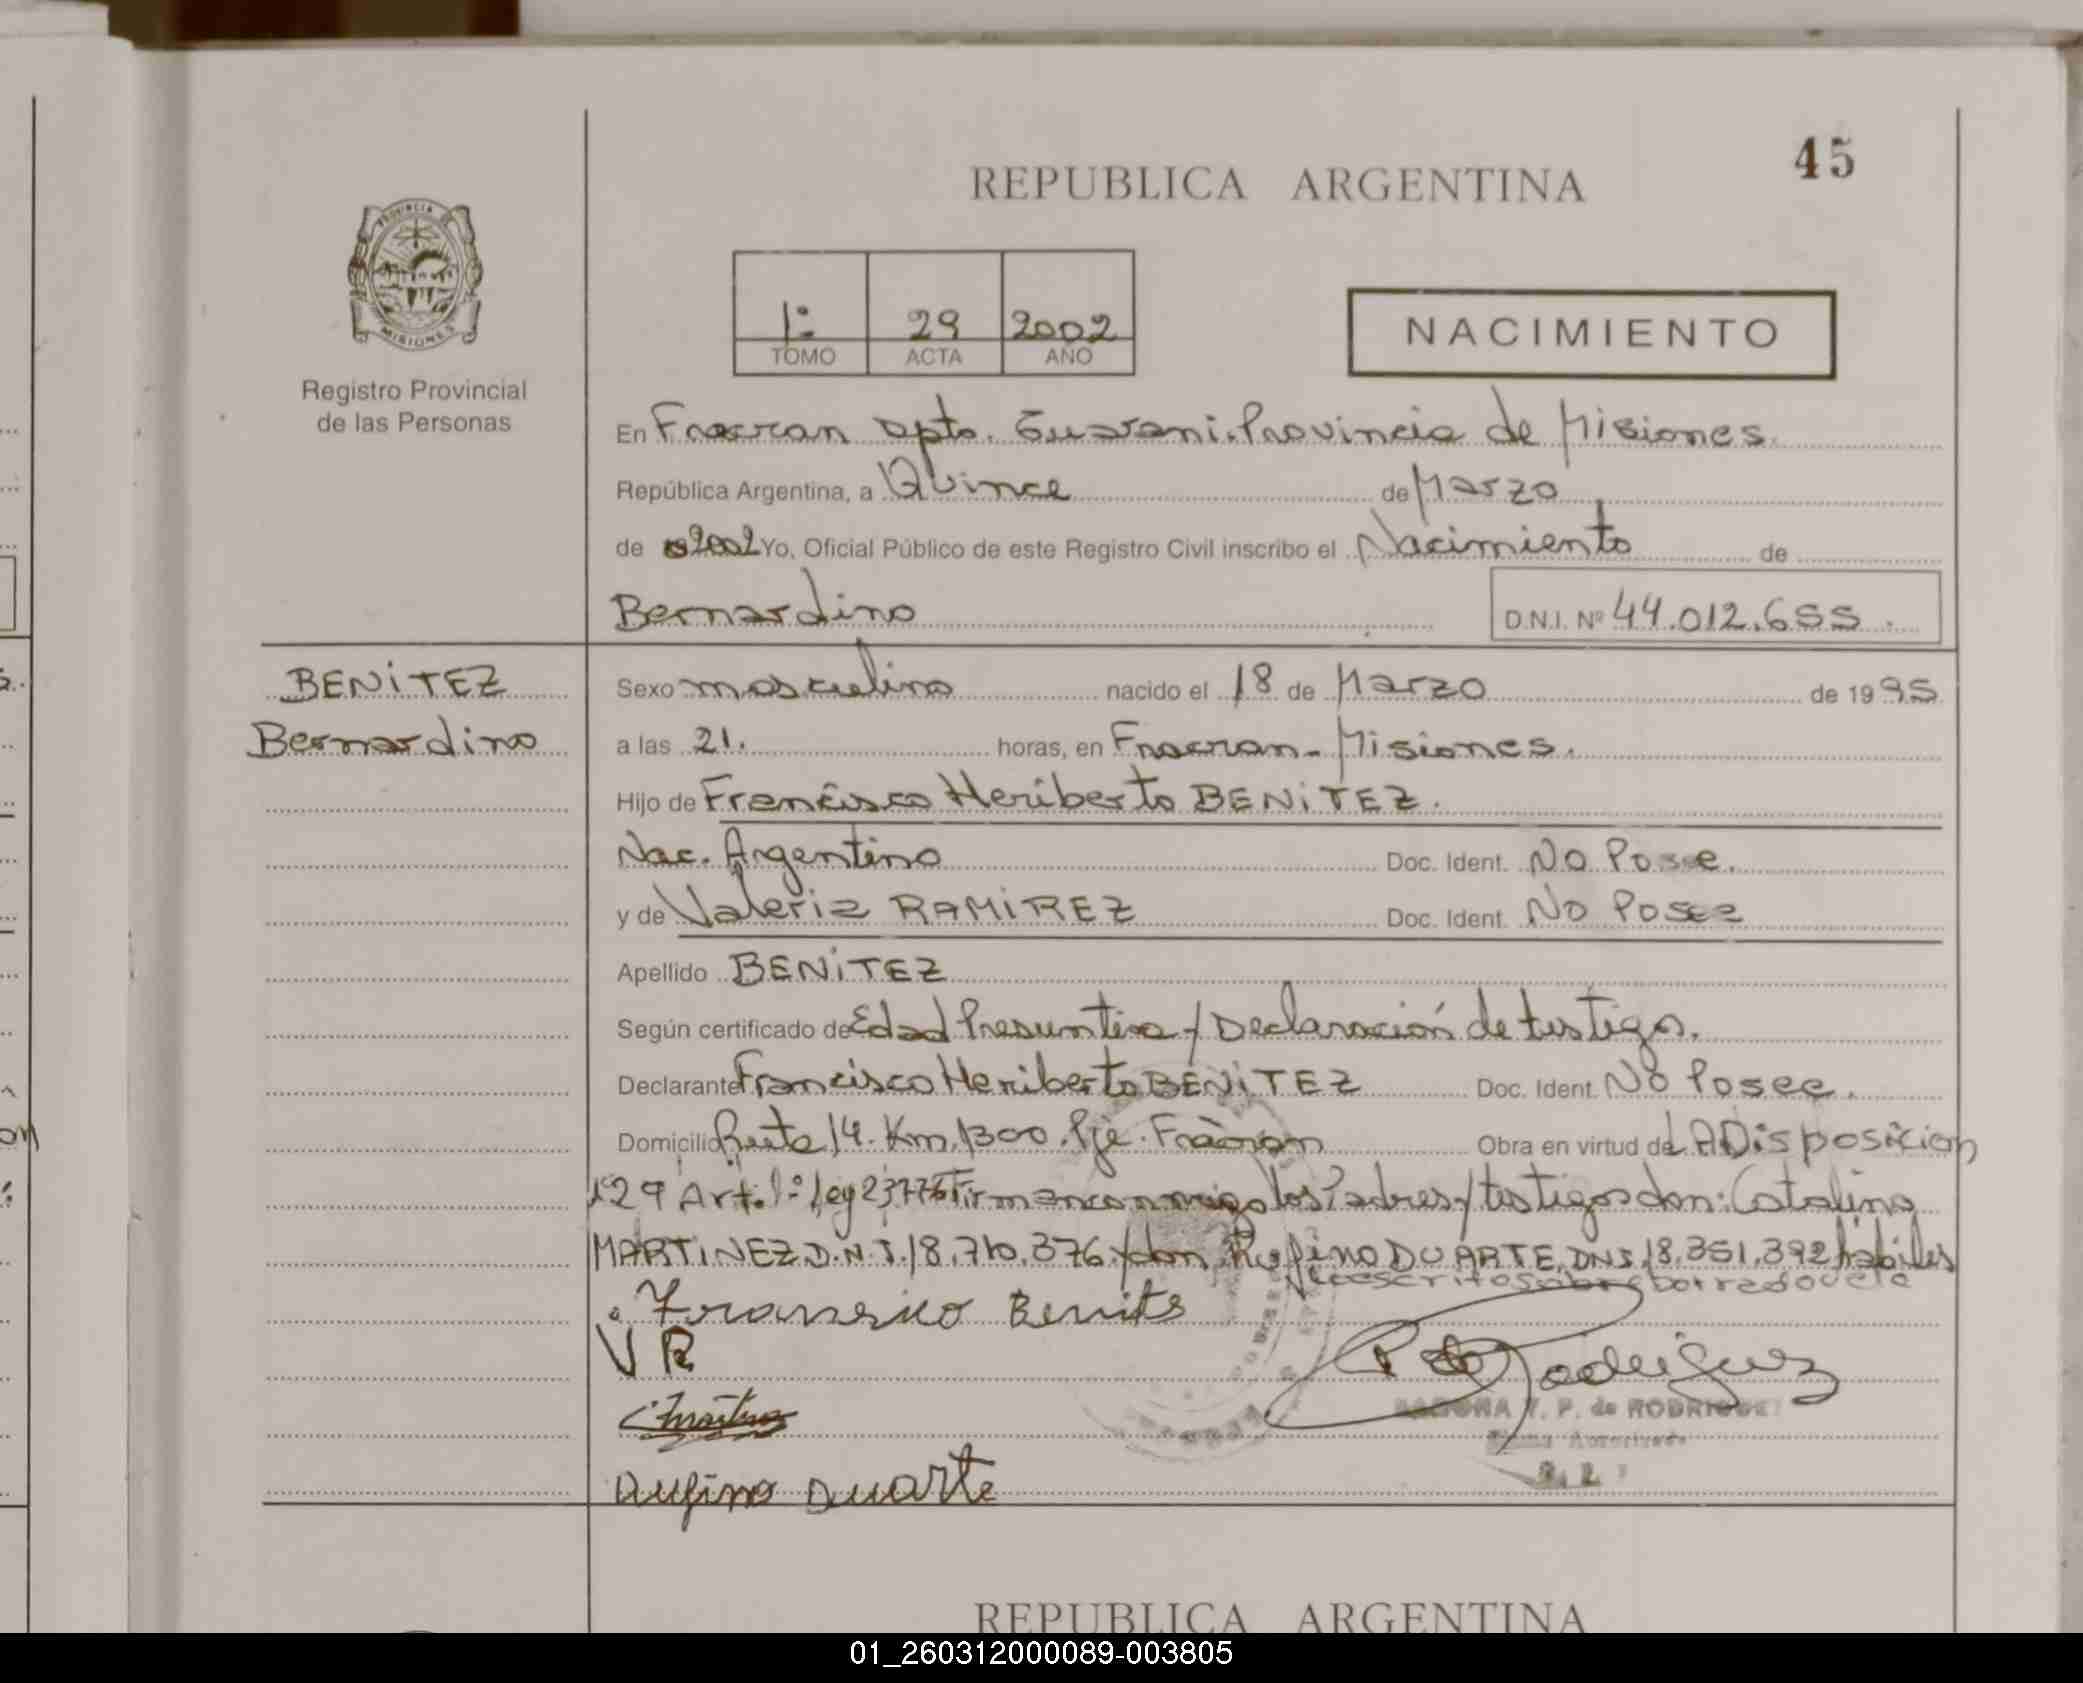 45
REPUBLICA ARGENTINA
PROVINCIA DE
MISIONES
Registro Provincial
de las Personas
1º 29 2002
TOMO ACTA AÑO
NACIMIENTO
En Fracran Dpto. Guarani. Provincia de Misiones.
República Argentina, a Quince de Marzo
de 2002 Yo, Oficial Público de este Registro Civil inscribo el Nacimiento de
Bernardino D.N.I. Nº 44.012.655.
BENiTEZ
Bernardino
Sexo masculino nacido el 18 de Marzo de 1995
a las 21. horas, en Fracran - Misiones.
Hijo de Francisco Heriberto BENiTEZ.
Nac. Argentino Doc. Ident. No Posee.
y de Valeria RAMiREZ Doc. Ident. No Posee
Apellido BENiTEZ
Según certificado de Edad Presuntiva y Declaración de testigo.
Declarante Francisco Heriberto BENiTEZ Doc. Ident. No Posee.
Domicilio Ruta 14. Km. 1300. Pje. Fracran Obra en virtud de LA Disposicion
29 Art. 1º Ley 23776 Firman conmigo los Padres y testigos don: Catalino
MARTiNEZ D.N.I. 18.710.376. y don Rufino DUARTE, DNI. 18.351.392 habiles
sobre borrado vale
Fransico Benits
V R
Rufino Duarte
Rodriguez
RAMONA V. P. de RODRIGUEZ
Firma Autorizada
REPUBLICA ARGENTINA
01_260312000089-003805